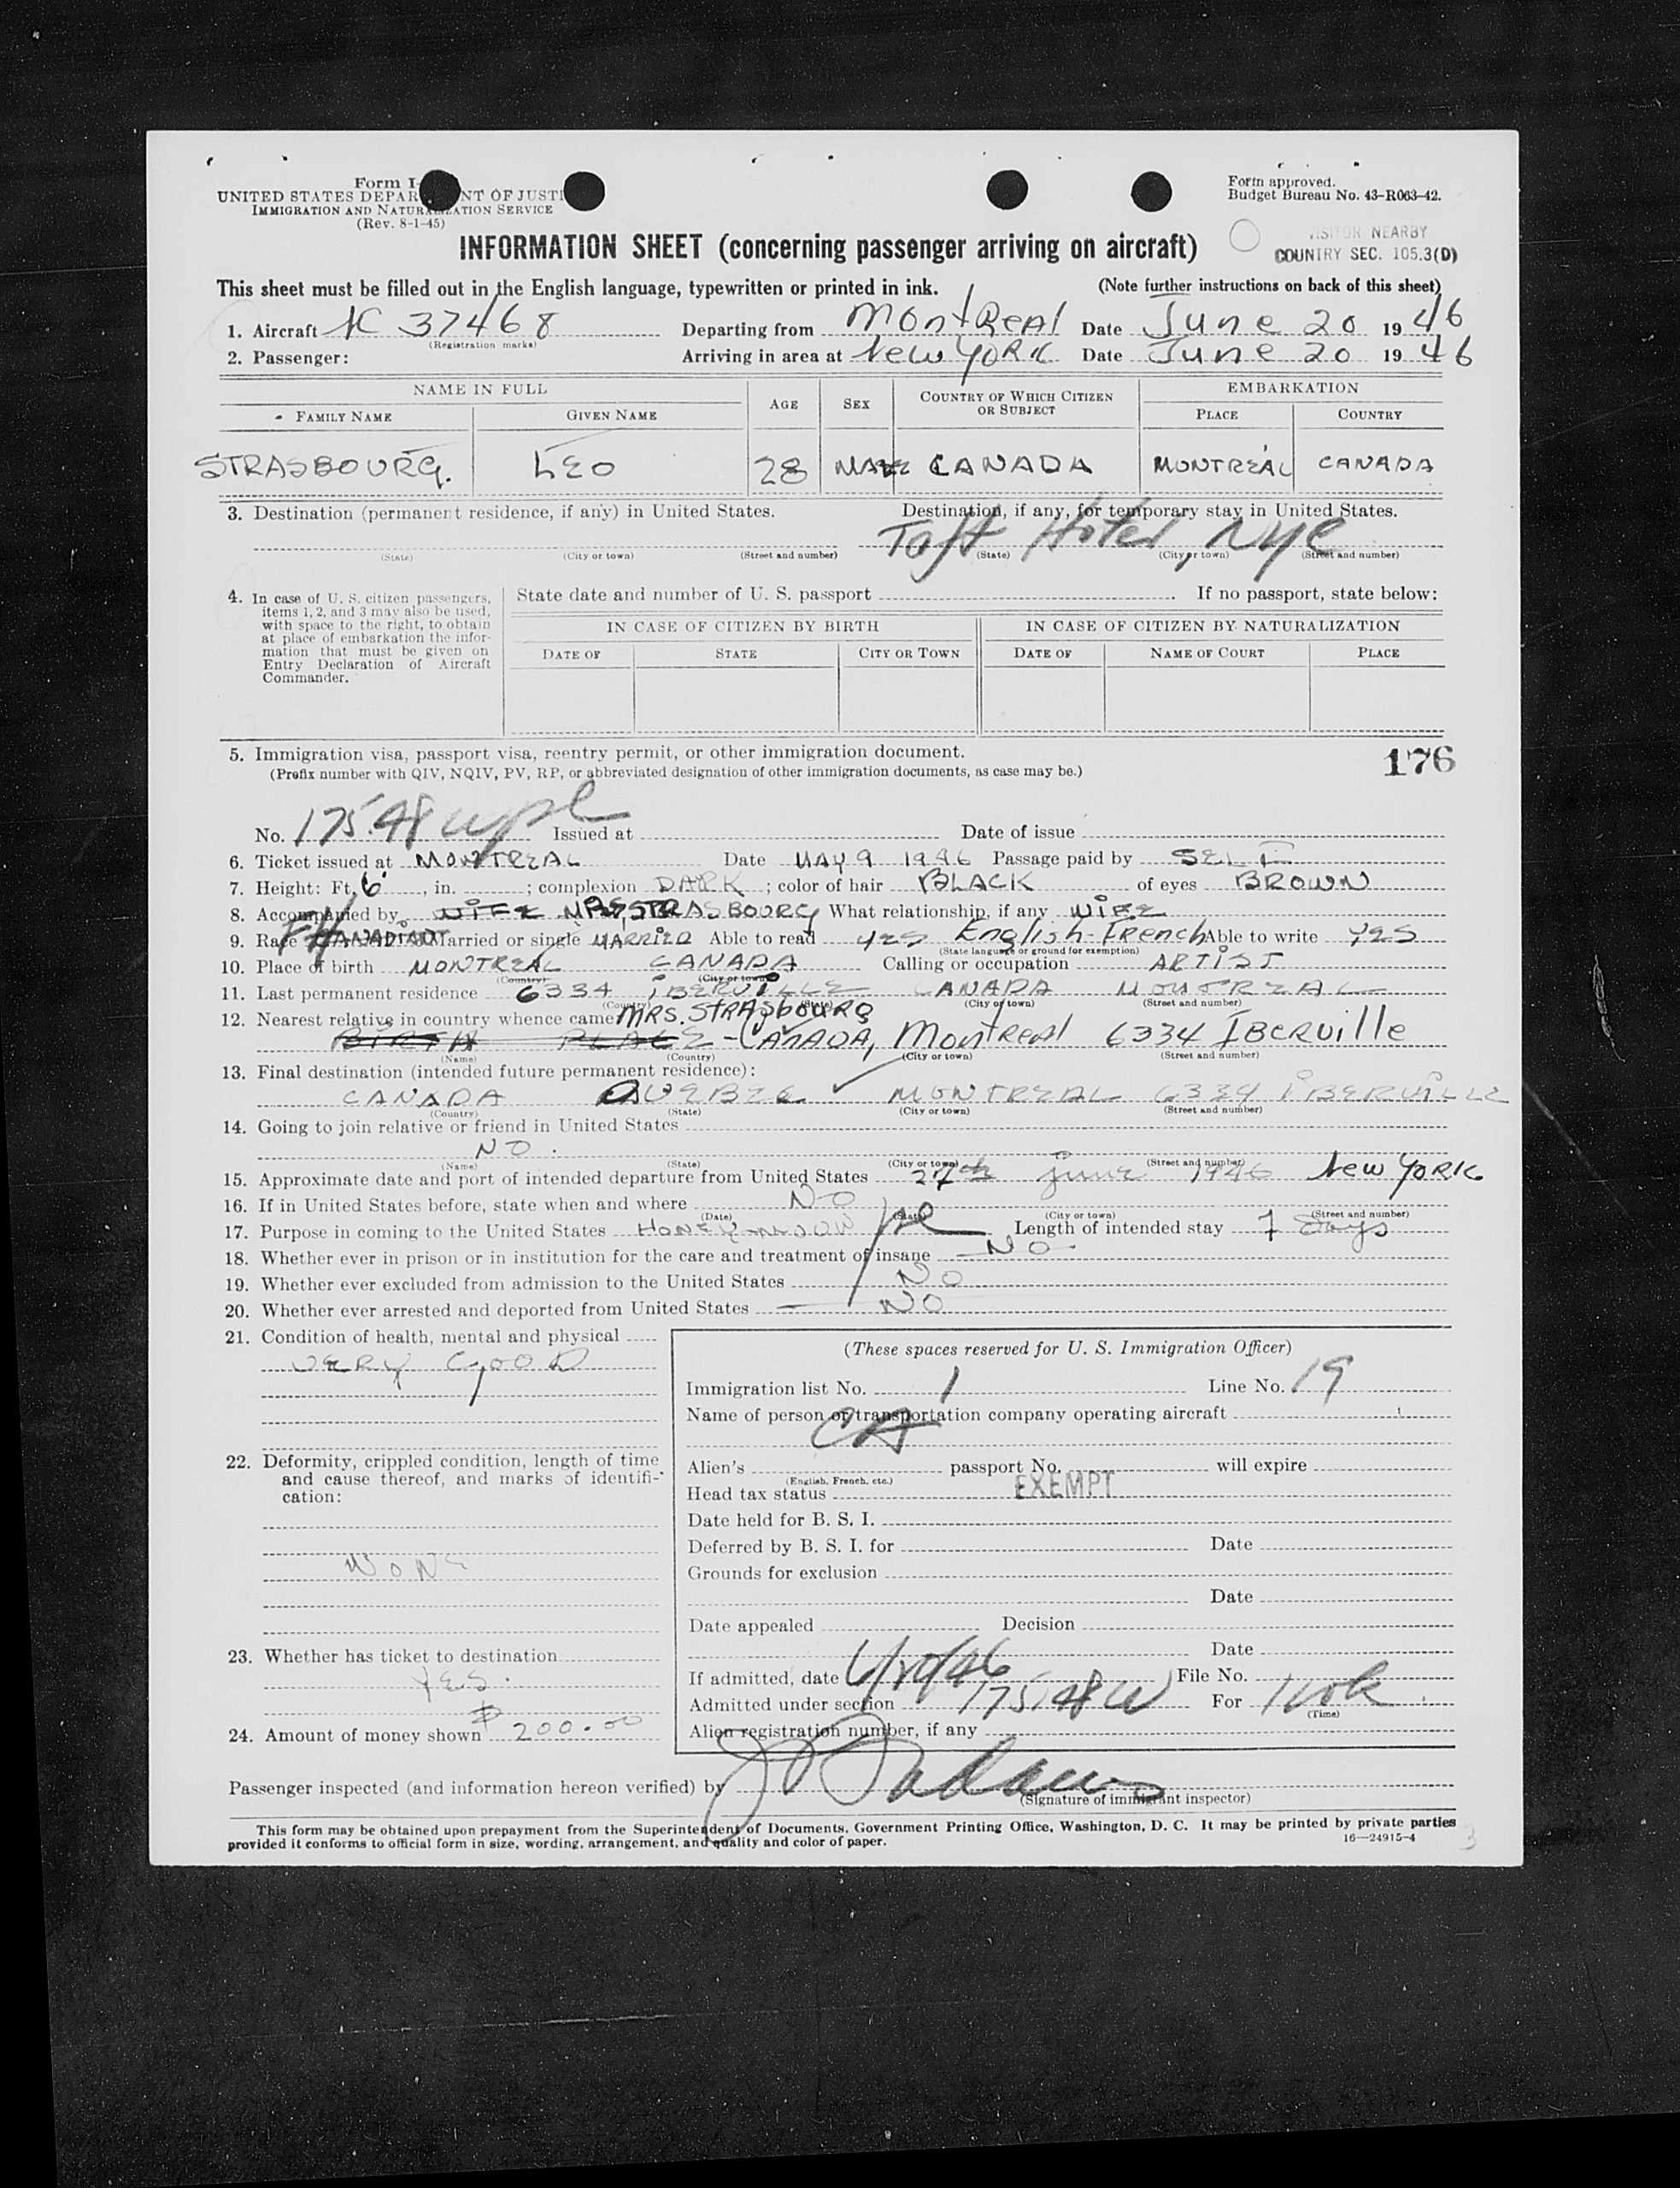 Form I-
UNITED STATES DEPAR NT OF JUSTI
IMMIGRATION AND NATURALIZATION SERVICE
(Rev. 8-1-45)
Form approved.
Budget Bureau No. 43-R063-42.
INFORMATION SHEET (concerning passenger arriving on aircraft)
VISITOR NEARBY
COUNTRY SEC. 105.3(D)
This sheet must be filled out in the English language, typewritten or printed in ink. (Note further instructions on back of this sheet)
1. Aircraft NC 37468 Departing from MontReal Date June 20 1946
(Registration marks)
2. Passenger: Arriving in area at New YORK Date June 20 1946
NAME IN FULL AGE SEX COUNTRY OF WHICH CITIZEN OR SUBJECT EMBARKATION
FAMILY NAME GIVEN NAME PLACE COUNTRY
STRASBOURG. LEO 28 MALE CANADA MONTREAL CANADA
3. Destination (permanent residence, if any) in United States. Destination, if any, for temporary stay in United States.
Taft Hotel NYC
(State) (City or town) (Street and number) (State) (City or town) (Street and number)
4. In case of U. S. citizen passengers,
items 1, 2, and 3 may also be used,
with space to the right, to obtain
at place of embarkation the infor-
mation that must be given on
Entry Declaration of Aircraft
Commander.
State date and number of U. S. passport If no passport, state below:
IN CASE OF CITIZEN BY BIRTH IN CASE OF CITIZEN BY NATURALIZATION
DATE OF STATE CITY OR TOWN DATE OF NAME OF COURT PLACE
5. Immigration visa, passport visa, reentry permit, or other immigration document. 176
(Prefix number with QIV, NQIV, PV, RP, or abbreviated designation of other immigration documents, as case may be.)
No. 175.48 Issued at Date of issue
6. Ticket issued at MONTREAL Date MAY 9 1946 Passage paid by SELF
7. Height: Ft. 6 , in. ; complexion DARK ; color of hair BLACK of eyes BROWN
8. Accompanied by WIFE MRS STRASBOURG What relationship, if any WIFE
9. Race CANADIAN Married or single MARRIED Able to read YES English-French Able to write YES
(State language or ground for exemption)
10. Place of birth MONTREAL CANADA Calling or occupation ARTIST
(Country) (City or town)
11. Last permanent residence 6334 IBERVILLE CANADA MONTREAL
(Country) (State) (City or town) (Street and number)
12. Nearest relative in country whence came MRS. STRASbOURG
BIRTH PLACE - CANADA, MontReal 6334 IBERville
(Name) (Country) (City or town) (Street and number)
13. Final destination (intended future permanent residence):
CANADA QUEBEC MONTREAL 6334 IBERVILLE
(Country) (State) (City or town) (Street and number)
14. Going to join relative or friend in United States
NO.
(Name) (State) (City or town) (Street and number)
15. Approximate date and port of intended departure from United States 27th june 1946 New YORK
16. If in United States before, state when and where NO
(Date) (State) (City or town) (Street and number)
17. Purpose in coming to the United States HONEY-MOON Length of intended stay 7 days
18. Whether ever in prison or in institution for the care and treatment of insane NO
19. Whether ever excluded from admission to the United States NO
20. Whether ever arrested and deported from United States NO
21. Condition of health, mental and physical
VERY GOOD
22. Deformity, crippled condition, length of time
and cause thereof, and marks of identifi-
cation:
NONE
23. Whether has ticket to destination
YES.
24. Amount of money shown $ 200.00
(These spaces reserved for U. S. Immigration Officer)
Immigration list No. 1 Line No. 19
Name of person or transportation company operating aircraft
CA
Alien's passport No. will expire
(English, French, etc.)
Head tax status EXEMPT
Date held for B. S. I.
Deferred by B. S. I. for Date
Grounds for exclusion
Date
Date appealed Decision
Date
If admitted, date 6/20/46 File No.
Admitted under section 175.48 For 1 wk
(Time)
Alien registration number, if any
Passenger inspected (and information hereon verified) by
(Signature of immigrant inspector)
This form may be obtained upon prepayment from the Superintendent of Documents, Government Printing Office, Washington, D. C. It may be printed by private parties
provided it conforms to official form in size, wording, arrangement, and quality and color of paper. 16—24915-4
3